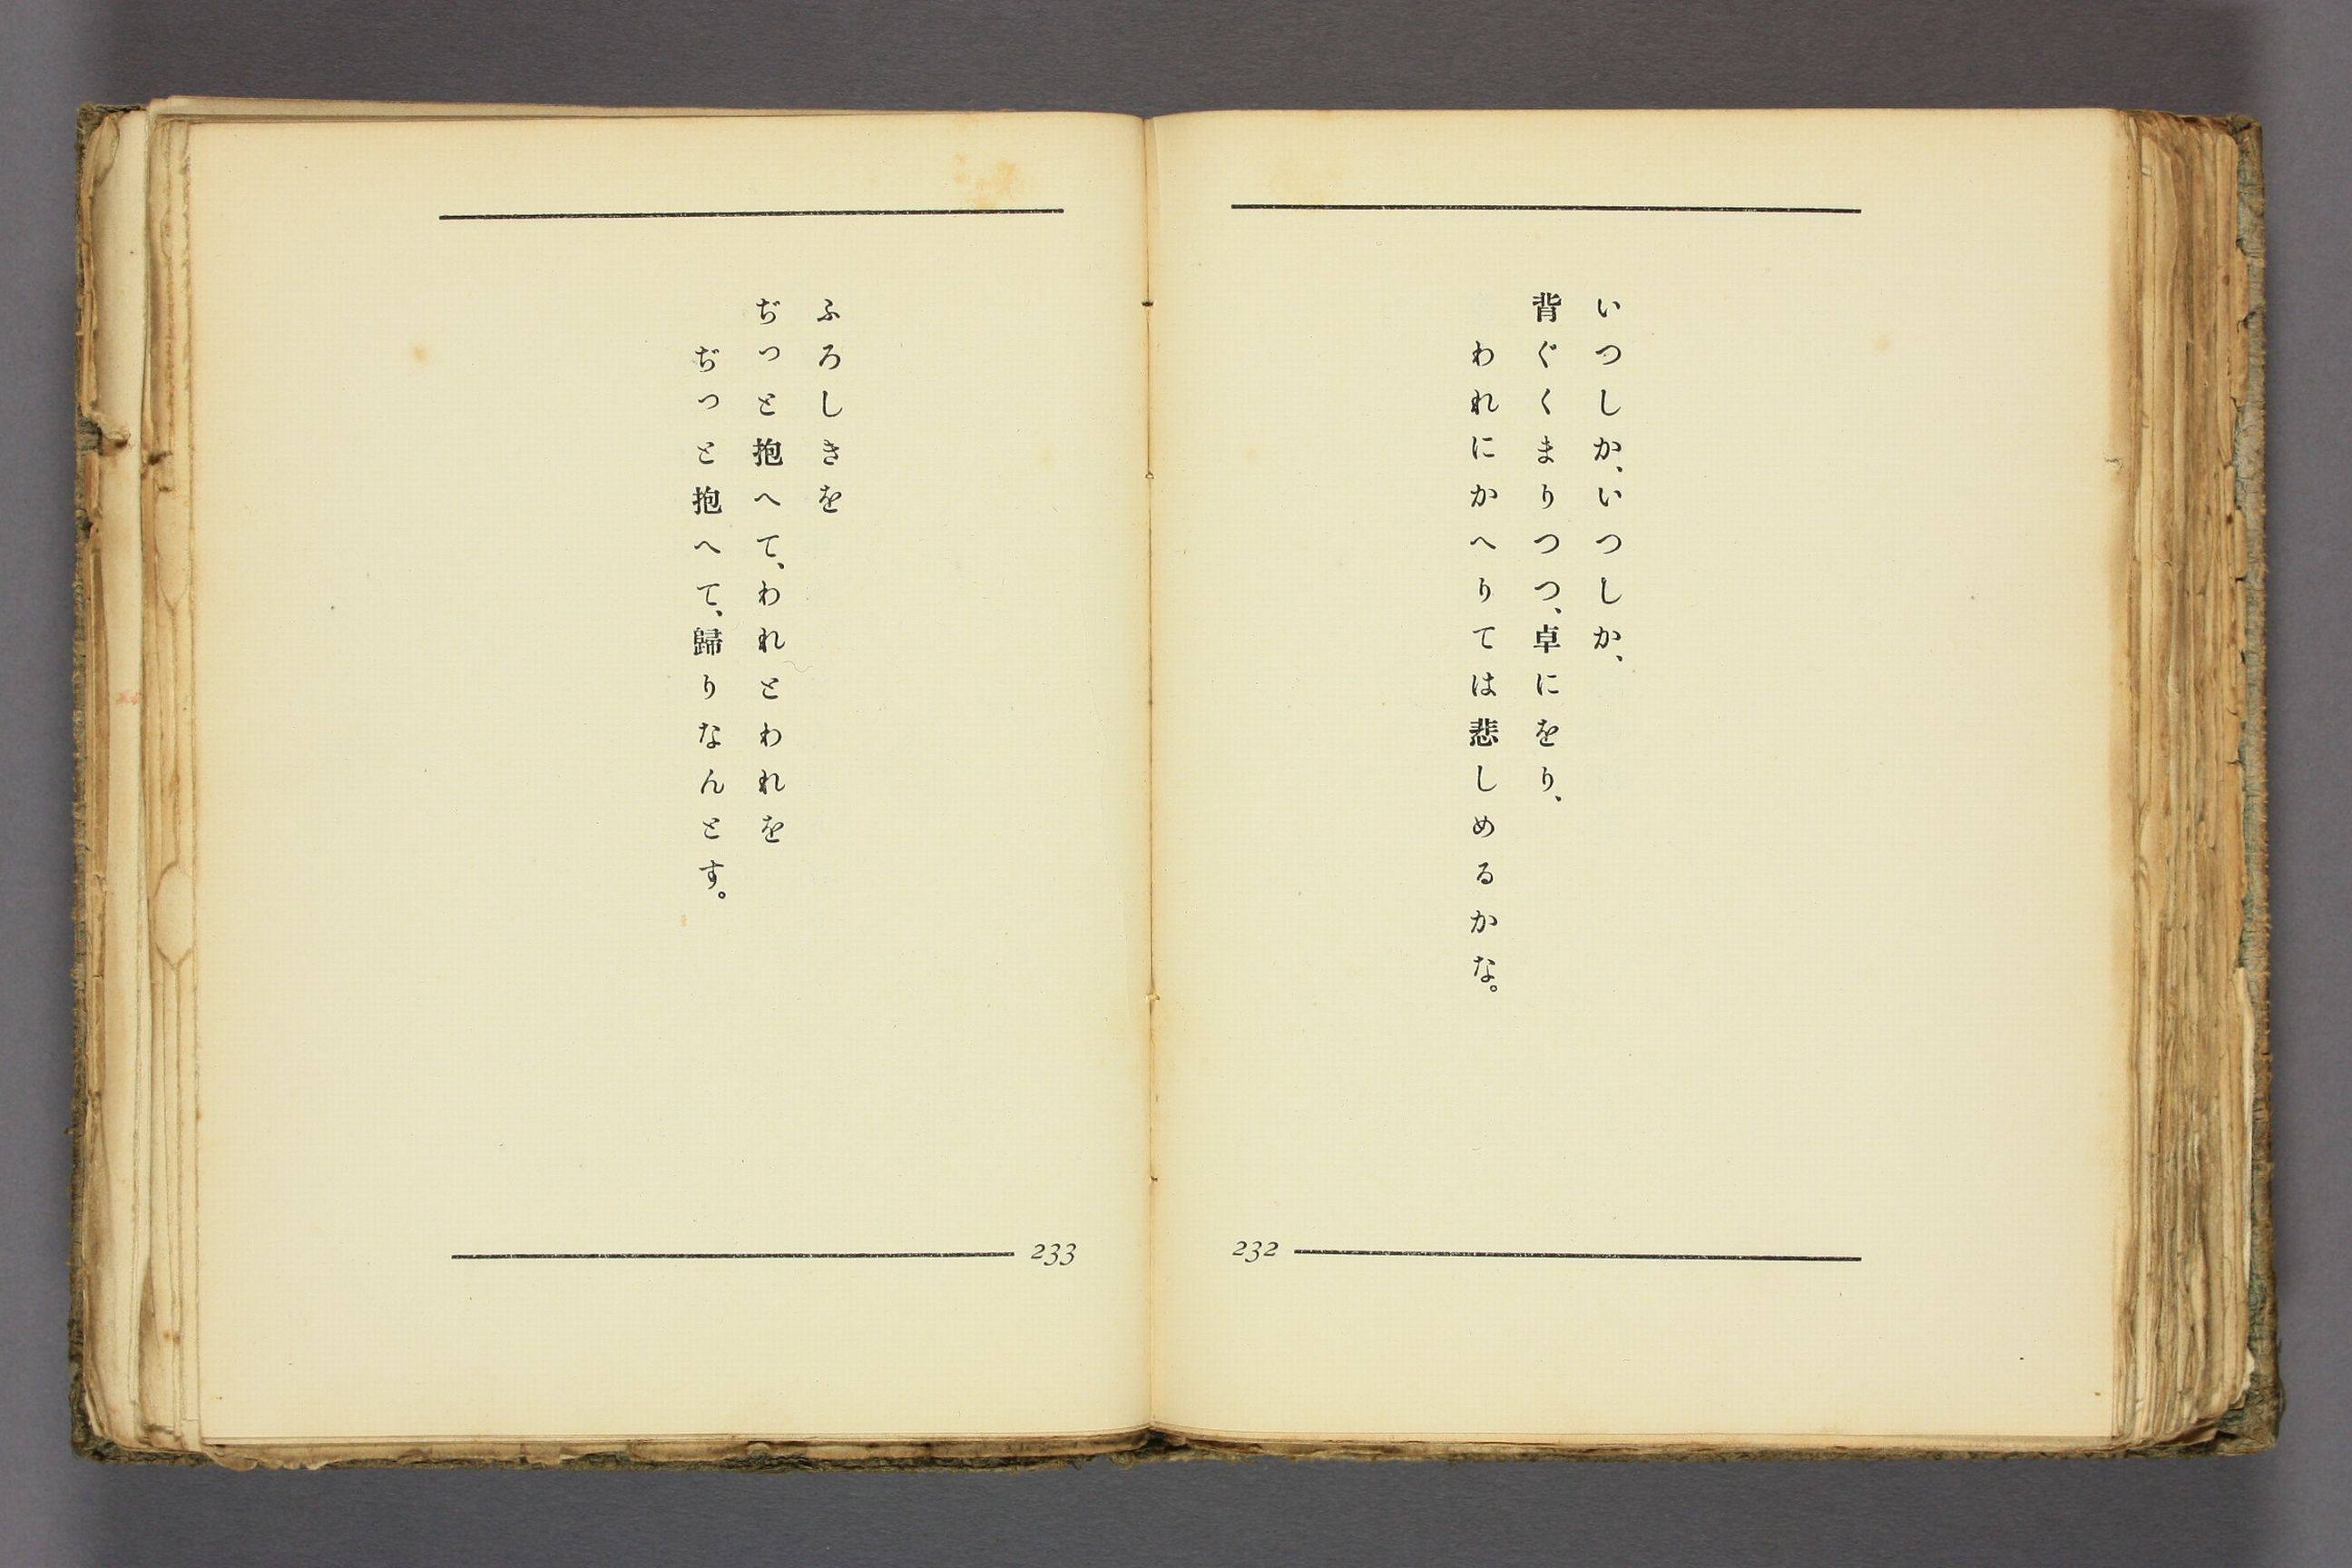 いつしか、いつしか、
背ぐくまりつつ、卓にをり、
われにかへりては悲しめるかな。
232
ふろしきを
ぢつと抱へて、われとわれを
ぢつと抱へて、歸りなんとす。
233